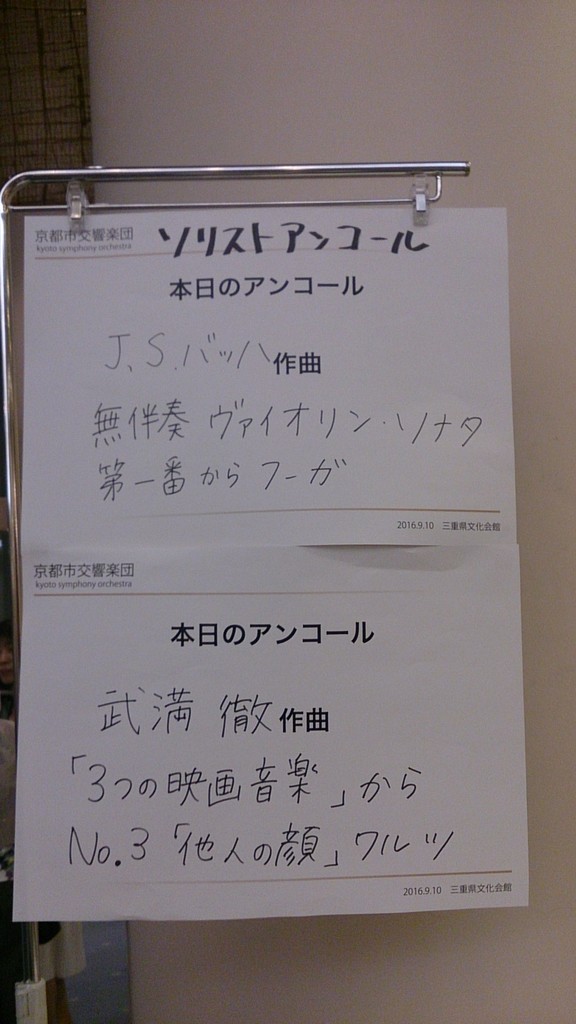 京都市交響楽団 ソリストアンコール
kyoto symphony orchestra
本日のアンコール
J.S.バッハ作曲
無伴奏 ヴァイオリン・ソナタ
第一番から フーガ
2016.9.10 三重県文化会館
京都市交響楽団
kyoto symphony orchestra
本日のアンコール
武満 徹作曲
「3つの映画音楽」から
No.3「他人の顔」ワルツ
2016.9.10 三重県文化会館